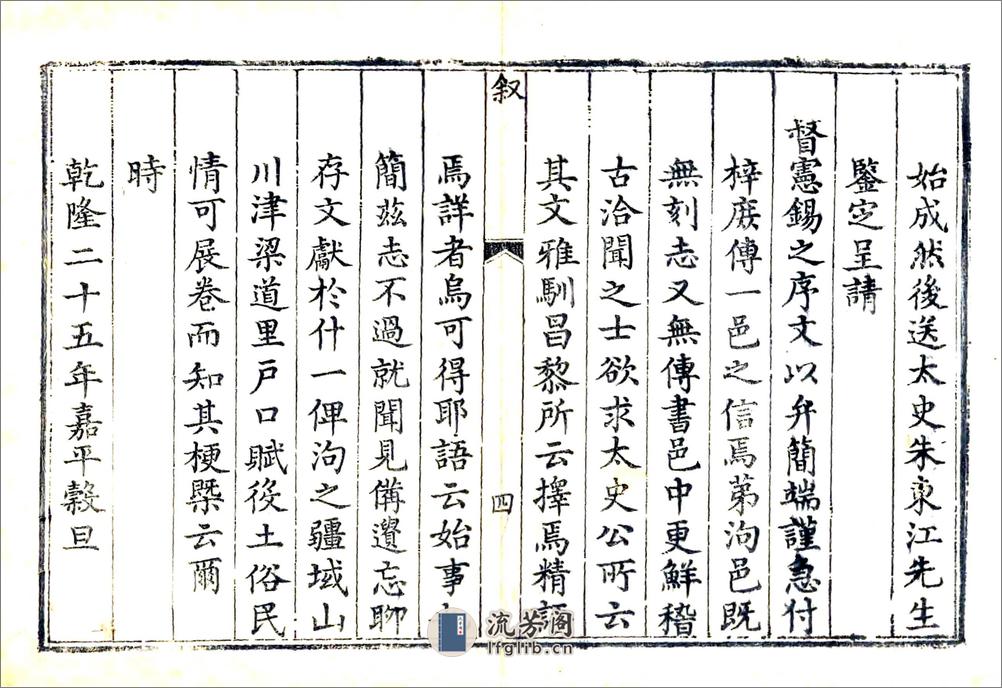 始成然後送太史朱東江先生
鑒定呈請
督憲錫之序文以弁簡端謹急付
梓庻傳一邑之信焉苐泃邑既
無刻志又無傳書邑中更鮮稽
古洽聞之士欲求太史公所云
其文雅馴昌黎所云擇焉精語
叙
四
焉詳者烏可得耶語云始事
簡茲志不過就聞見備遺忘聊
存文獻於什一俾泃之疆域山
川津梁道里戶口賦役土俗民
情可展卷而知其梗槩云爾
時
乾隆二十五年嘉平穀旦
流芳閣
lfglib.cn